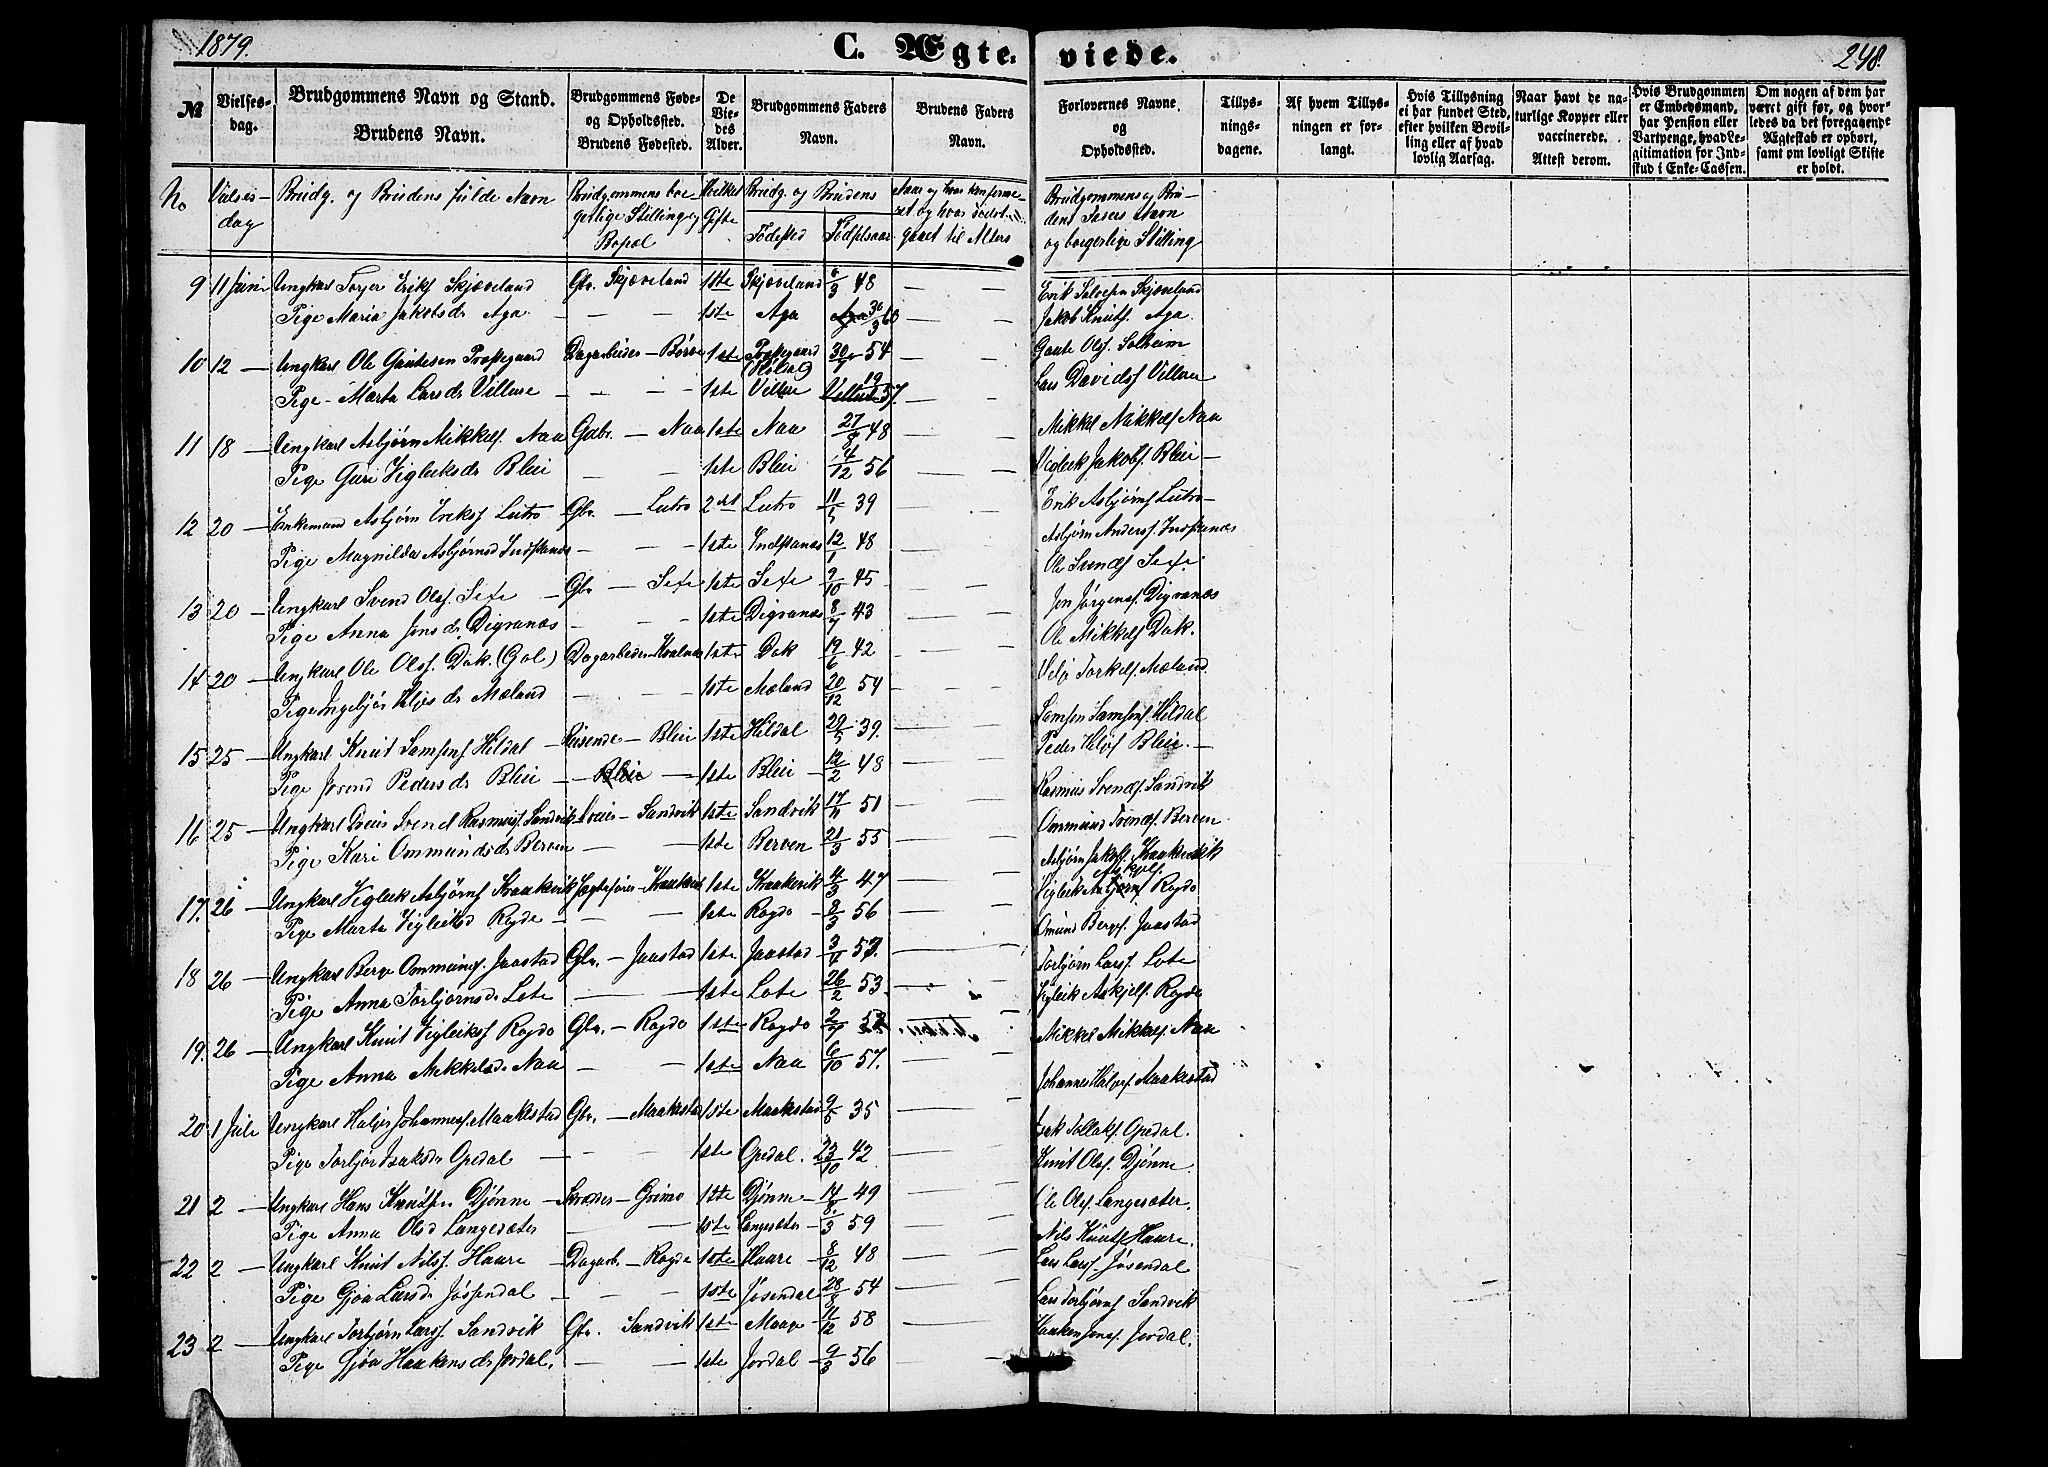 1879.
C. Ægte-
viede.
248.
№
Vielses-
dag.
Brudgommens Navn og Stand.
Brudens Navn.
Brudgommens Føde-
og Opholdssted.
Brudens Fødested.
De
Vie-
des
Alder.
Brudgommens Faders
Navn.
Brudens Faders
Navn.
Forlovernes Navne,
og
Opholdssted.
Tillys-
nings-
dagene.
Af hvem Tillys-
ningen er for-
langt.
Hvis Tillysning
ei har fundet Sted,
efter hvilken Bevil-
ling eller af hvad
lovlig Aarsag.
Naar havt de na-
turlige Kopper eller
vaccinerede.
Attest derom.
Hvis Brudgommen
er Embedsmand,
har Pension eller
Vartpenge, hvad Le-
gitimation for Ind-
skud i Enke-Cassen.
Om nogen af dem har
været gift før, og hvor-
ledes da det foregaaende
Ægteskab er ophørt,
samt om lovligt Skifte
er holdt.
No
Vielses-
dag
Brudg. og Brudens fulde Navn
Brudgommens bor-
gerlige Stilling og
Bopæl
Hvilket
Gifte
Brudg. og Brudens
Fødested
Fødselsaar
gaaet til Alters
Brudgommens og Bru-
dens Faders Navn
og borgerlige Stilling
9 11 Juni Ungkarl Torger Eriks. Skjæveland Gbr. Skjæveland 1ste Skjæveland 6/3 48 — — Erik Salvesen Skjæveland
Pige Maria Jakobsdr Aga — — 1ste Aga 30/3 60 — — Jakob Knuts. Aga
10 12 — Ungkarl Ole Gautesen Prestegaard Dagarbeider — Børve 1ste Prestegaard 30/7 54 — — Gaute Ols. Solheim
Pige Marta Larsdr Villure — — 1ste Villure 57. — — Lars Davids. Villure
11 18 — Ungkarl Asbjørn Mikkels. Naa Gdbr. — Naa 1ste Naa 27/8 48 — — Mikkel Mikkels. Naa
Pige Guri Vigleiksdr Bleie — — 1ste Bleie 4/12 56 — — Vigleik Jakobs. Bleie
12 20 — Enkemand Asbjørn Eriks. Lutro Gbr. — Lutro 2det Lutro 11/5 39 — — Erik Asbjørns. Lutro
Pige Magnilda Asbjørnsd Indstanæs — — 1ste Indstanæs 12/1 48 — — Asbjørn Anders. Indstanæs
13 20 — Ungkarl Svend Ols. Sexe Gbr — Sexe 1ste Sexe 9/10 45 — — Ole Svends. Sexe
Pige Anna Jonsdr. Digranæs — — 1ste Digranæs 8/7 43 — — Jon Jørgens. Digranæs
14 20 — Ungkarl Ole Ols. Dak. (Gol) Dagarbeider — Kvalnæs 1ste Dak 19/6 42 — — Ole Mikkels Dak.
Pige Ingebjør Veljesdr Mæland — — 1ste Mæland 20/12 54 — — Torkels. Mæland
15 25 — Ungkarl Knut Samsons. Hildal Reisende — Bleie 1ste Hildal 29/5 39. — — Samson Samsons. Hildal
Pige Josend Pedersdr Bleie — Bleie — 1ste Bleie 12/2 48 — — Peder Bleie
16 25 — Ungkarl Svend Rasmuss. Sandvik — Sandvik 1ste Sandvik 17/11 51 — — Rasmus Svends. Sandvik
Pige Kari Ommundsdr Berven — — 1ste Berven 21/3 55 — — Ommund Svends. Berven
17. 26 — Ungkarl Vigleik Asbjørns Kraakevik Jægtefører — Kraakevik 1ste Kraakevik 4/3 47 — — Asbjørn Jakobs. Kraakevik
Pige Marta Vigleiksd Rogde — — 1ste Rogde 8/3 56 — — Vigleik Rogde
18 26 — Ungkarl Berge Ommunds. Jaastad Gbr. — Jaastad 1ste Jaastad 3/7 57. — — Omund Bergs. Jaastad
Pige Anna Torbjørnsdr Lote — — 1ste Lote 26/2 53. — — Torbjørn Lars. Lote
19. 26 — Ungkarl Knut Vigleiks Rogde Gbr. — Rogde 1ste Rogde 2/7 Vigleik Askjels. Rogde
Pige Anna Mikkelsd. Naa — — 1ste Naa 6/10 57. — — Mikkel Mikkels. Naa
20 1 Juli Ungkarl Haljer Johanness. Maakestad Gbr. — Maakestad 1ste Maakestad 9/5 35 — — Johannes Maakestad
Pige Torbjør Isaksdr Opedal — — 1ste Opedal. 23/10 42 — — Isak Tollaks. Opedal.
21 2 — Ungkarl Hans Knuts. Djønne Skræder — Grimo 1ste Djønne 14/8 49 — — Knut Ols. Djønne.
Pige Anna Olsd Langesæter — — 1ste Langesæter 1/3 59 — — Ole Ols. Langesæter.
22 2 — Ungkarl Knut Nils. Haare Dagarb. — Rogde 1ste Haare 8/12 48 — — Nils Knuts. Haare.
Pige Gjøa Larsdr Jøsendal — — 1ste Jøsendal 28/8 54 — — Lars Lars. Jøsendal
23 2 — Ungkarl Torbjørn Lars. Sandvik Gbr. Sandvik 1ste Maage 11/12 58 — — Lars Torbjørns. Sandvik
Pige Gjøa Haakensdr Jordal. — — 1ste Jordal 9/3 56 — — Haaken Jons. Jordal.